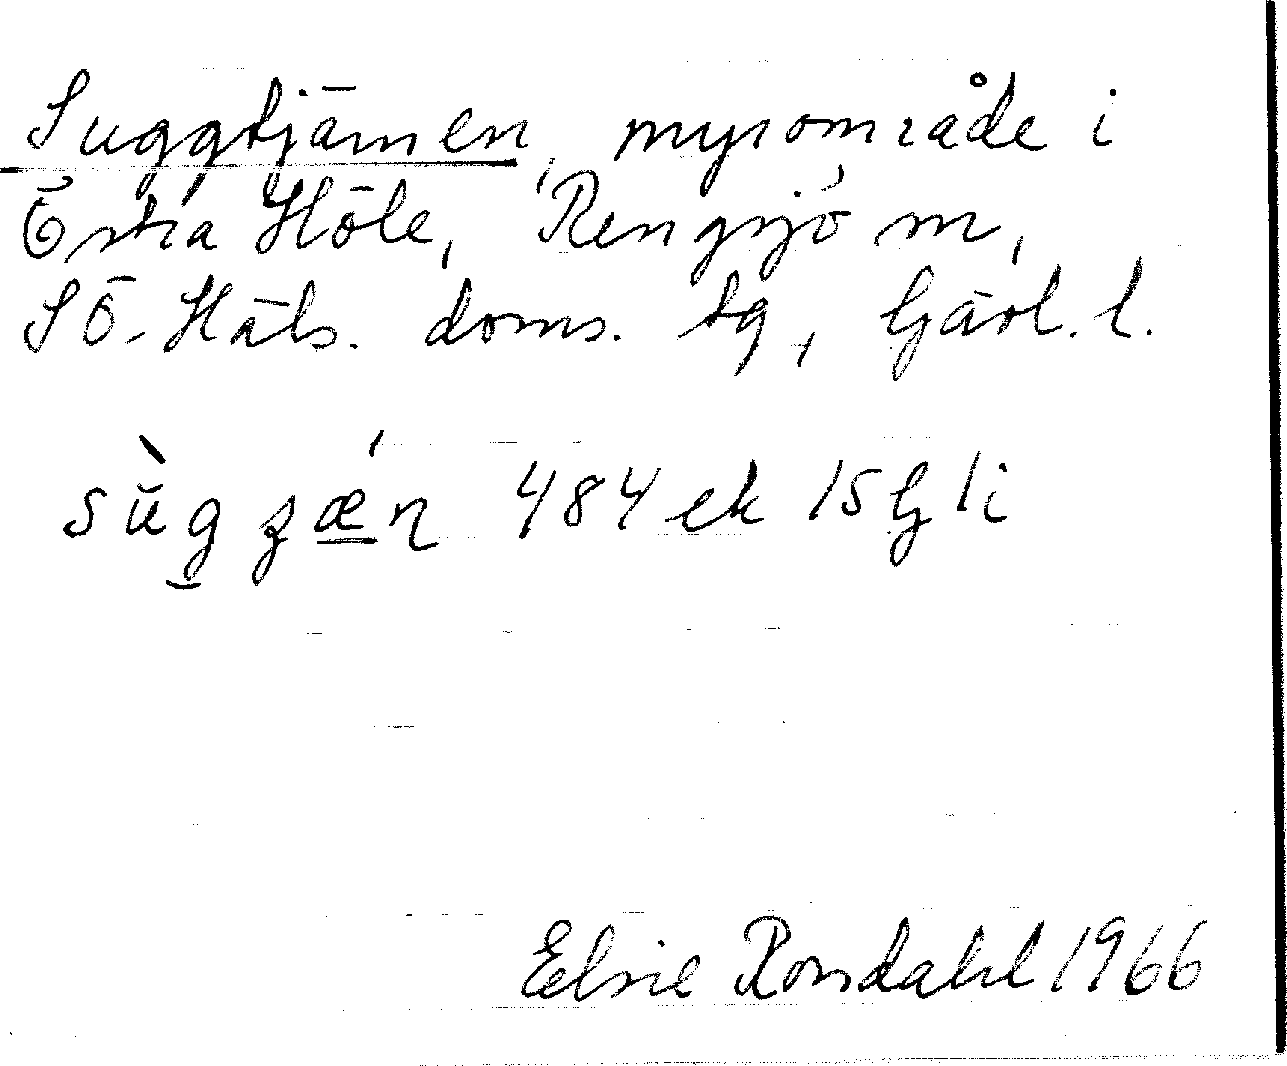 Suggtjärnen, myrområde i
Östra Höle, Rengsjö sn,
SÖ. Häls. doms. tg, Gävl. l.
484 ek 15 G 1i
Elsie Rondahl 1966